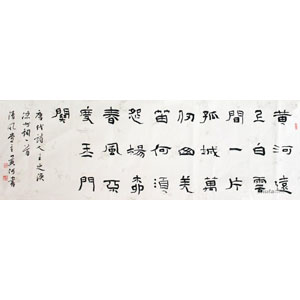 黄河遠
上白雲
間一片
孤城萬
仞山羌
笛何須
怨楊柳
春風不
度玉門
關
唐代詩人王之渙
涼州詞一首
書